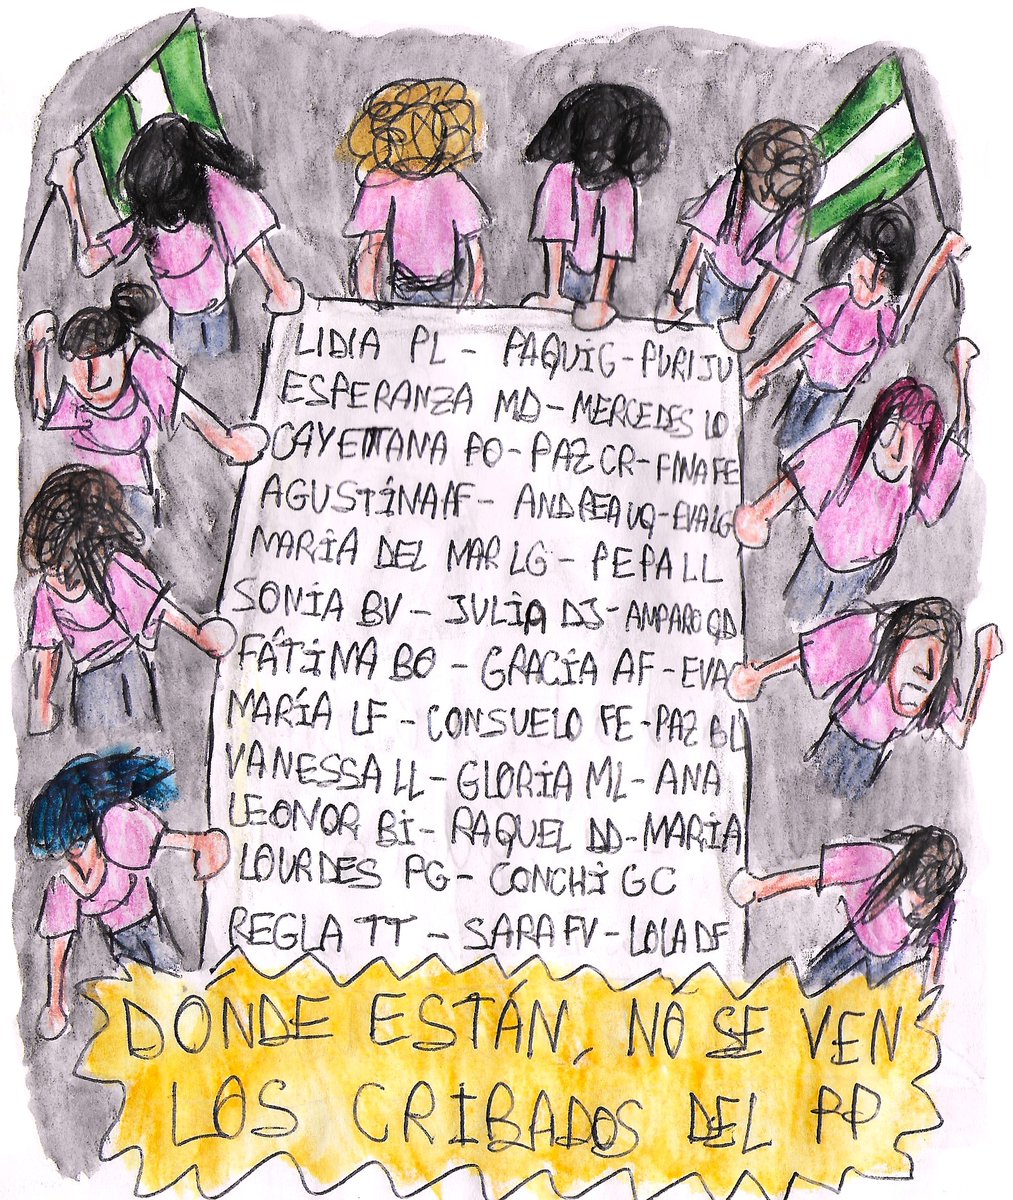 LIDIA PL - PAQUI G - PURI JU
ESPERANZA MD - MERCEDES LO
CAYETANA PO - PAZ CR - FINA FE
AGUSTINA AF - ANDREA UQ - EVA LG
MARIA DEL MAR LG - PEPA LL
SONIA BV - JULIA DJ - AMPARO QD
FÁTIMA BO - GRACIA AF - EVA
MARÍA LF - CONSUELO FE - PAZ BL
VANESSA LL - GLORIA ML - ANA
LEONOR BI - RAQUEL DD - MARIA
LOURDES PG - CONCHI GC
REGLA TT - SARA FV - LOLA DF
DÓNDE ESTÁN, NO SE VEN
LOS CRIBADOS DEL PP